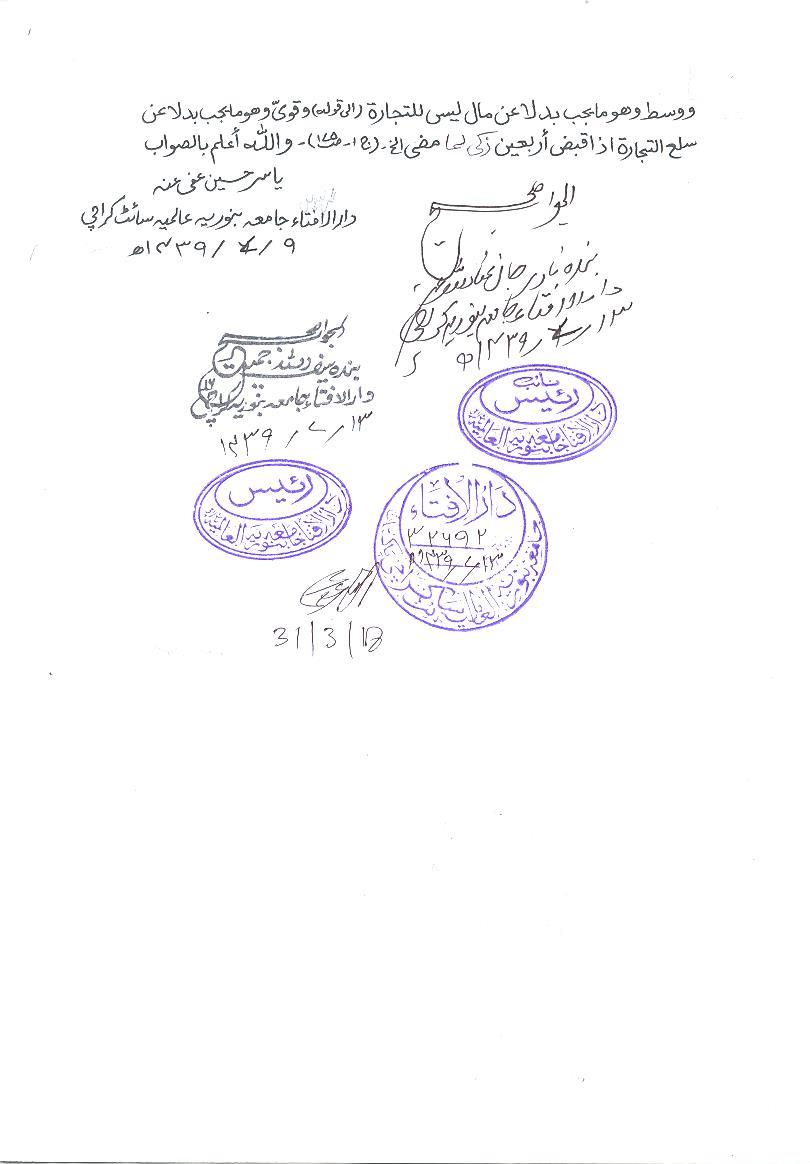 ووسط وهو ما يجب بدلا عن مال ليس للتجارة (الی قوله) وقویّ وهو ما يجب بدلا عن
سلع التجارة اذا قبض أربعين زكى لما مضى الخ۔ (ج۱۔ ص۱۷۵)۔ والله أعلم بالصواب
یاسر حسین عفی عنہ
دارالافتاء جامعہ بنوریہ عالمیہ سائٹ کراچی
۹/۷/۱۴۳۹ھ
الجواب صحیح
بندہ
دارالافتاء جامعہ بنوریہ کراچی
۱۳/۷/۱۴۳۹ھ
نائب
رئيس
دار الافتاء جامعه بنوريه العالمية
الجواب صحیح
بندہ سیف اللہ جمیل
دارالافتاء جامعہ بنوریہ کراچی
۱۳/۷/۱۴۳۹
رئيس
دار الافتاء جامعه بنوريه العالمية
دَارُ الْاِفْتَاء
۳۲۶۹۲
۱۳/۷/۱۴۳۹
جامعه بنوريه العالمية سائٹ کراچی
31/3/18